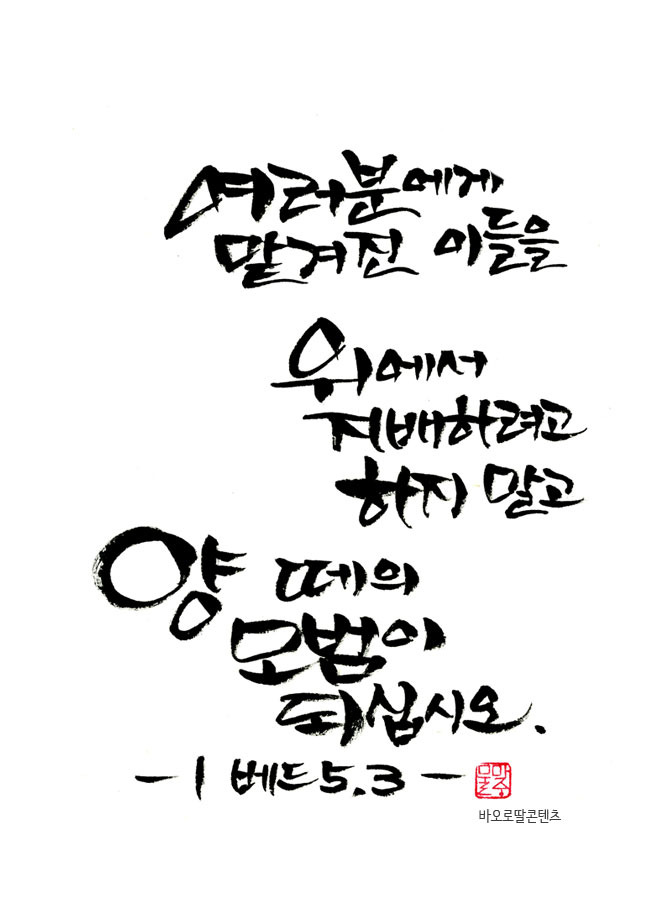 여러분에게
맡겨진 이들을
위에서
지배하려고
하지 말고
양 떼의
모범이
되십시오.
- 1 베드 5.3 -
바오로딸콘텐츠